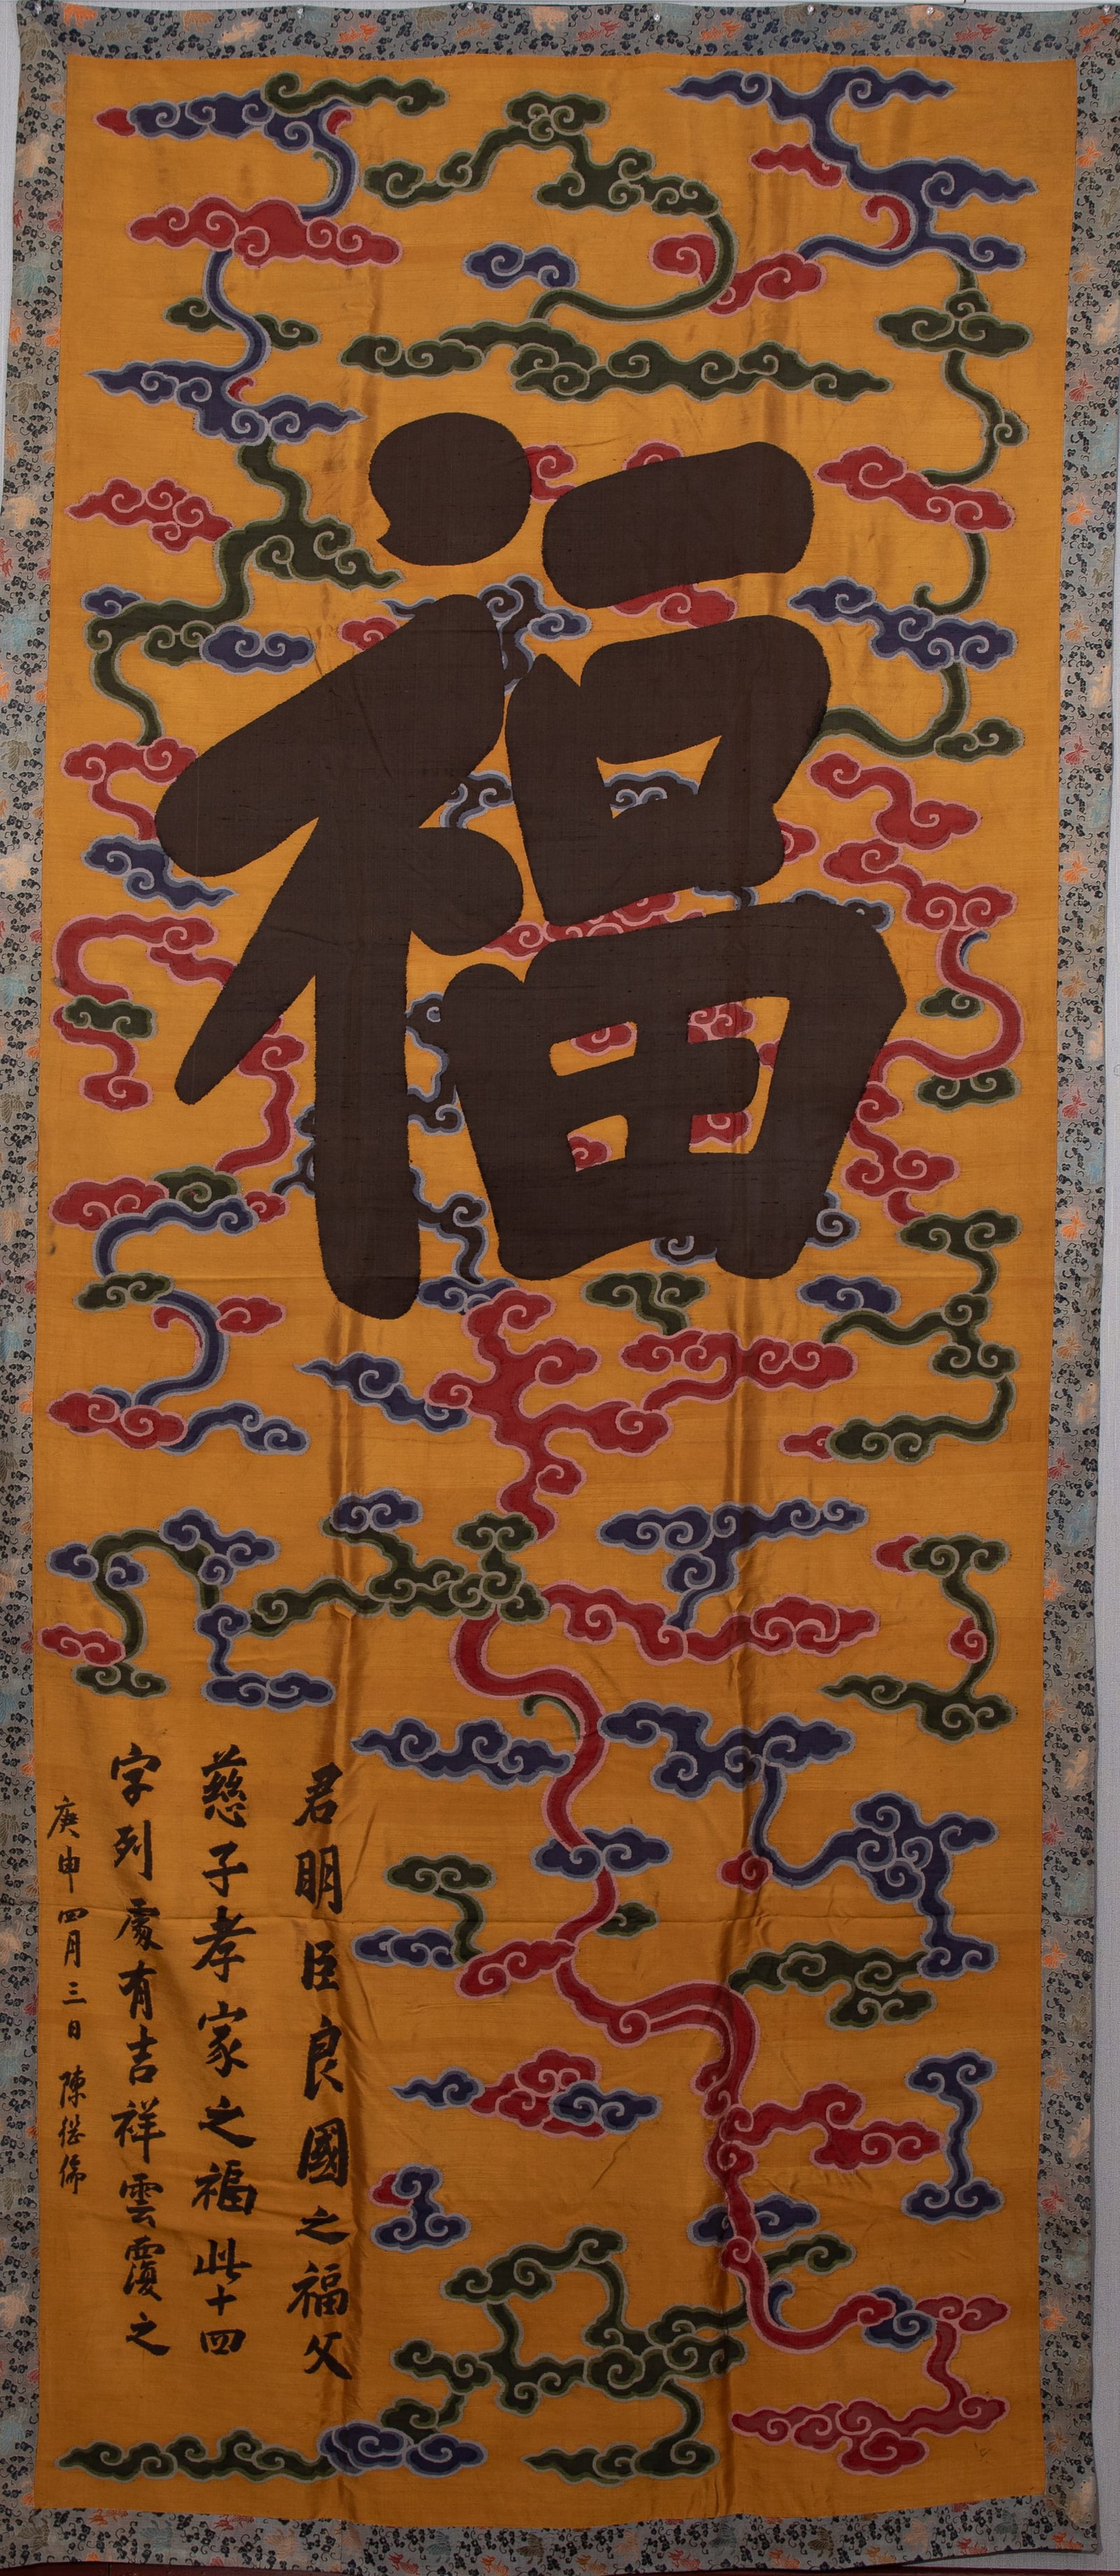 福
君明臣良國之福父
慈子孝家之福此十四
字列處有吉祥雲覆之
庚申四月三日 陳繼倫